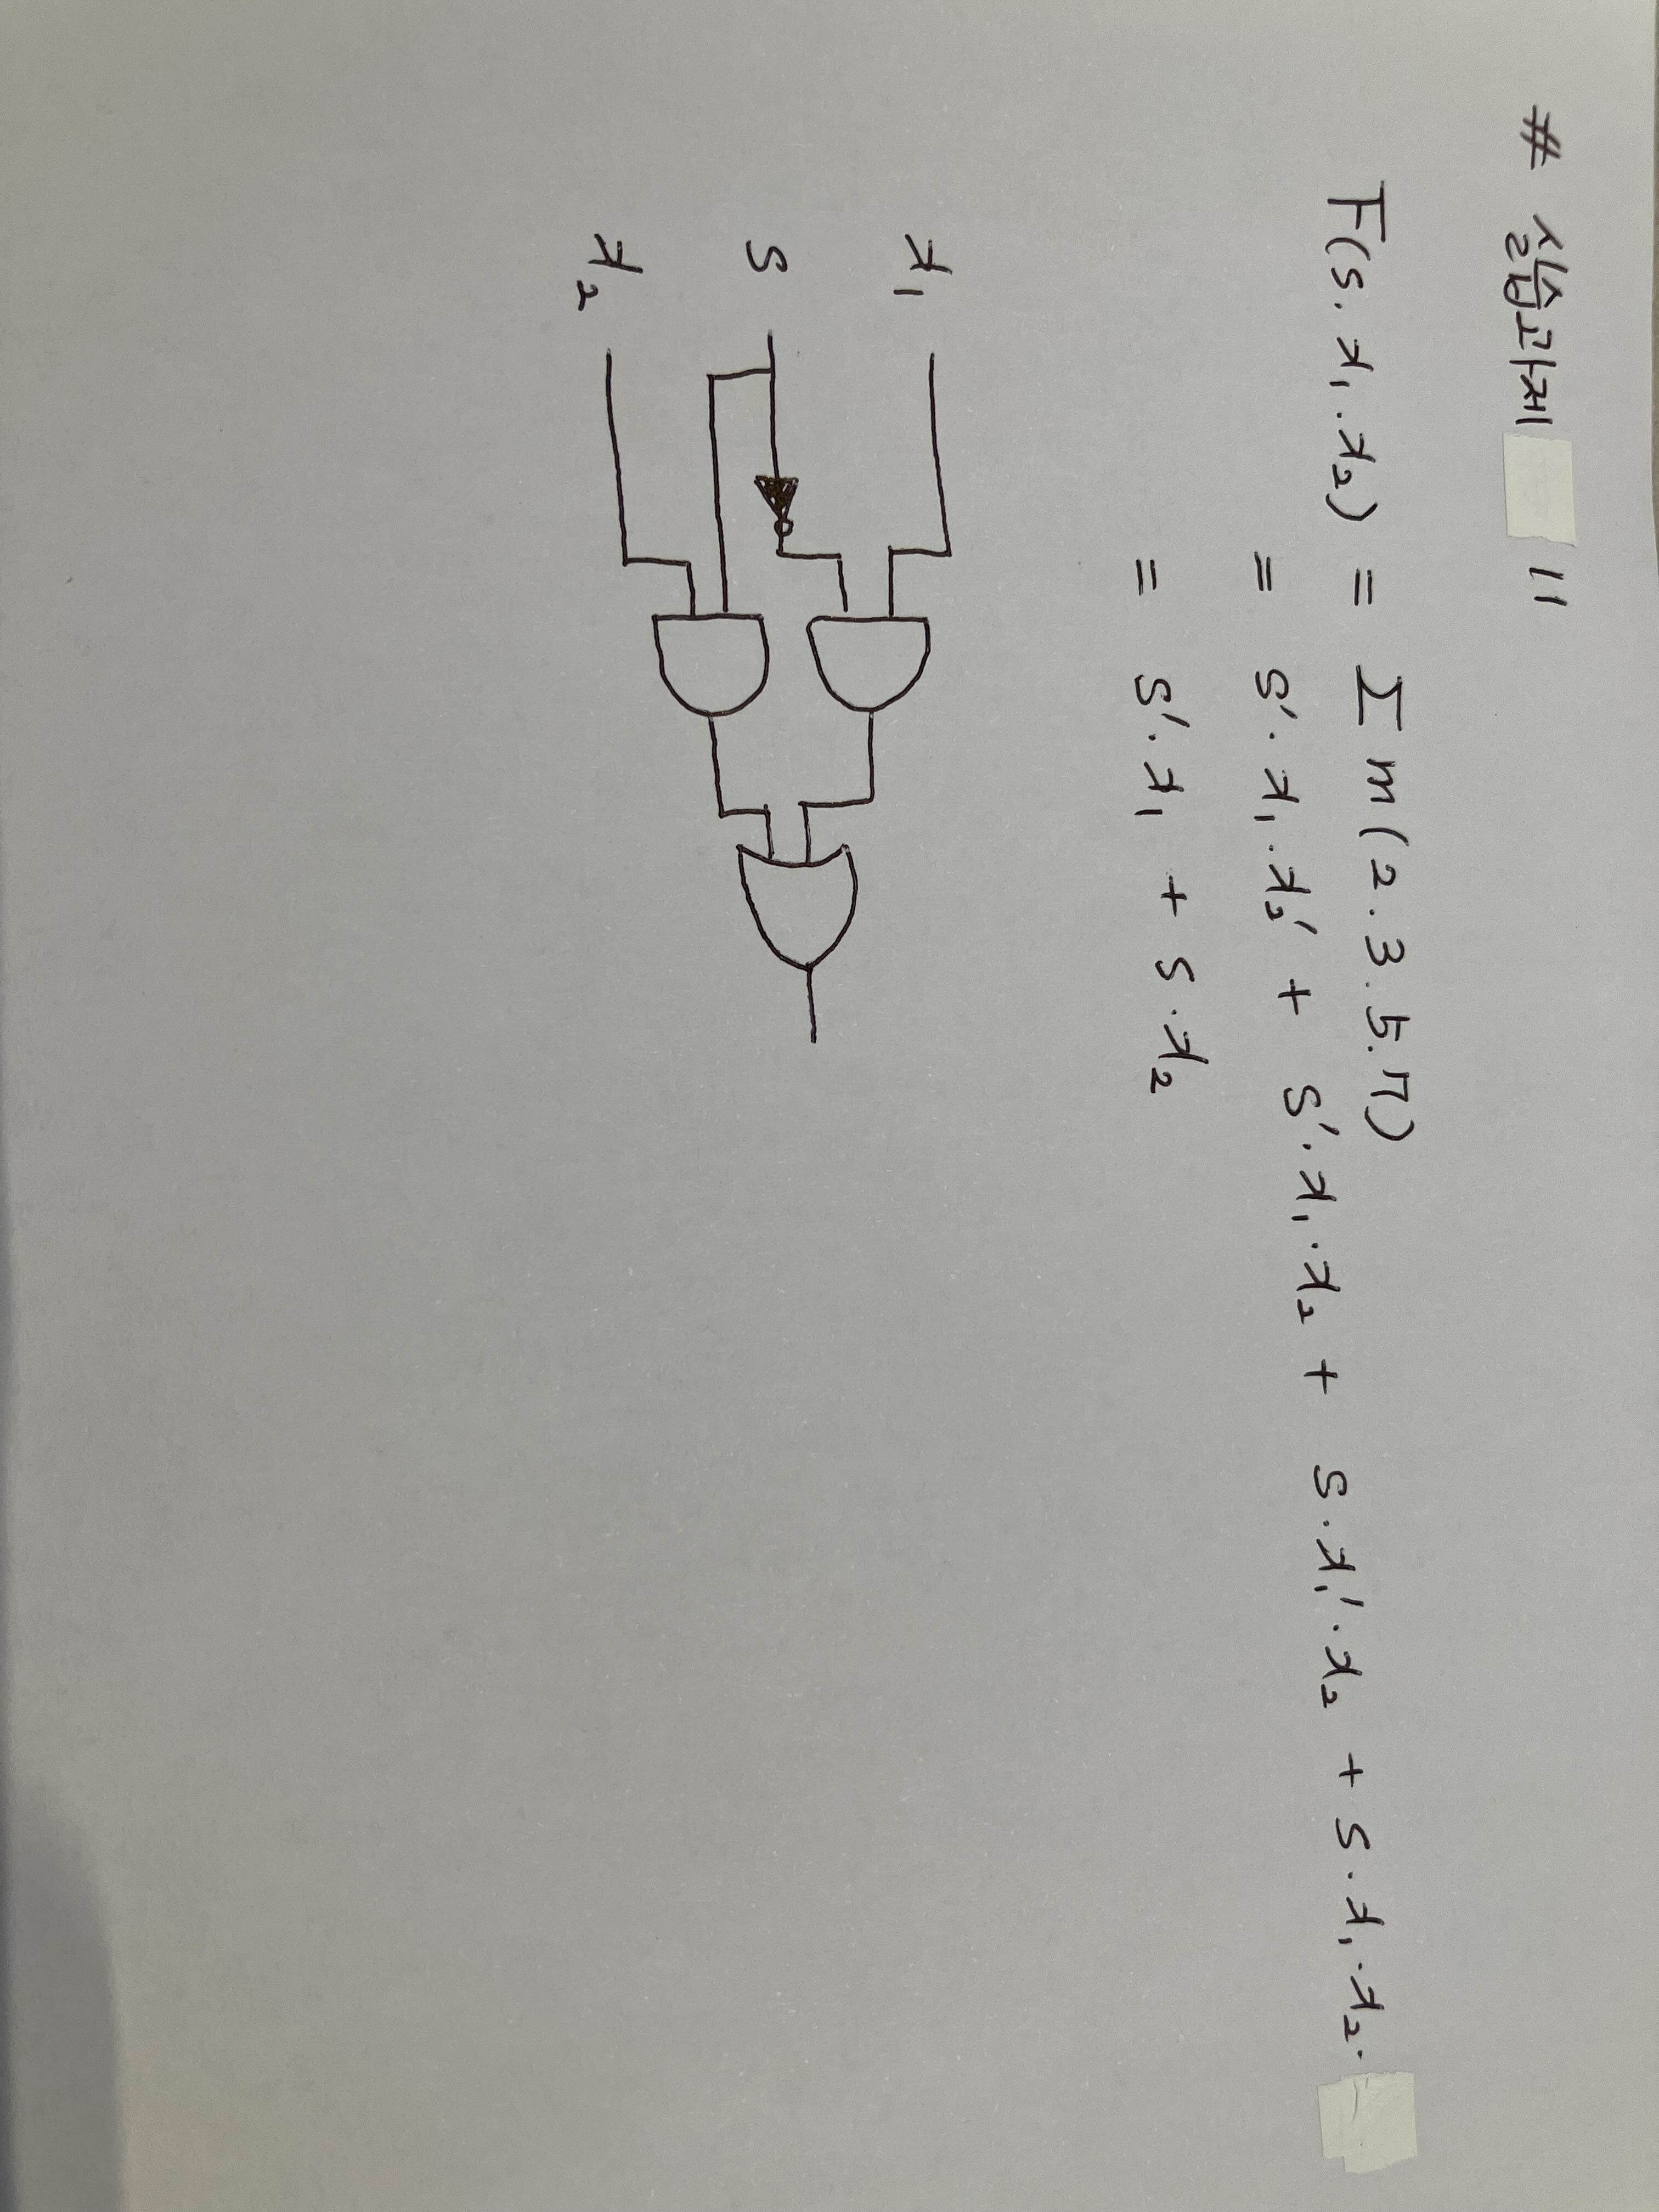 # 실습과제 11
F(s. x₁. x₂) = Σ m (2. 3. 5. 7)
= s'. x₁. x₂' + s'. x₁. x₂ + s. x₁'. x₂ + s. x₁. x₂.
= s'. x₁ + s. x₂
x₁
s
x₂